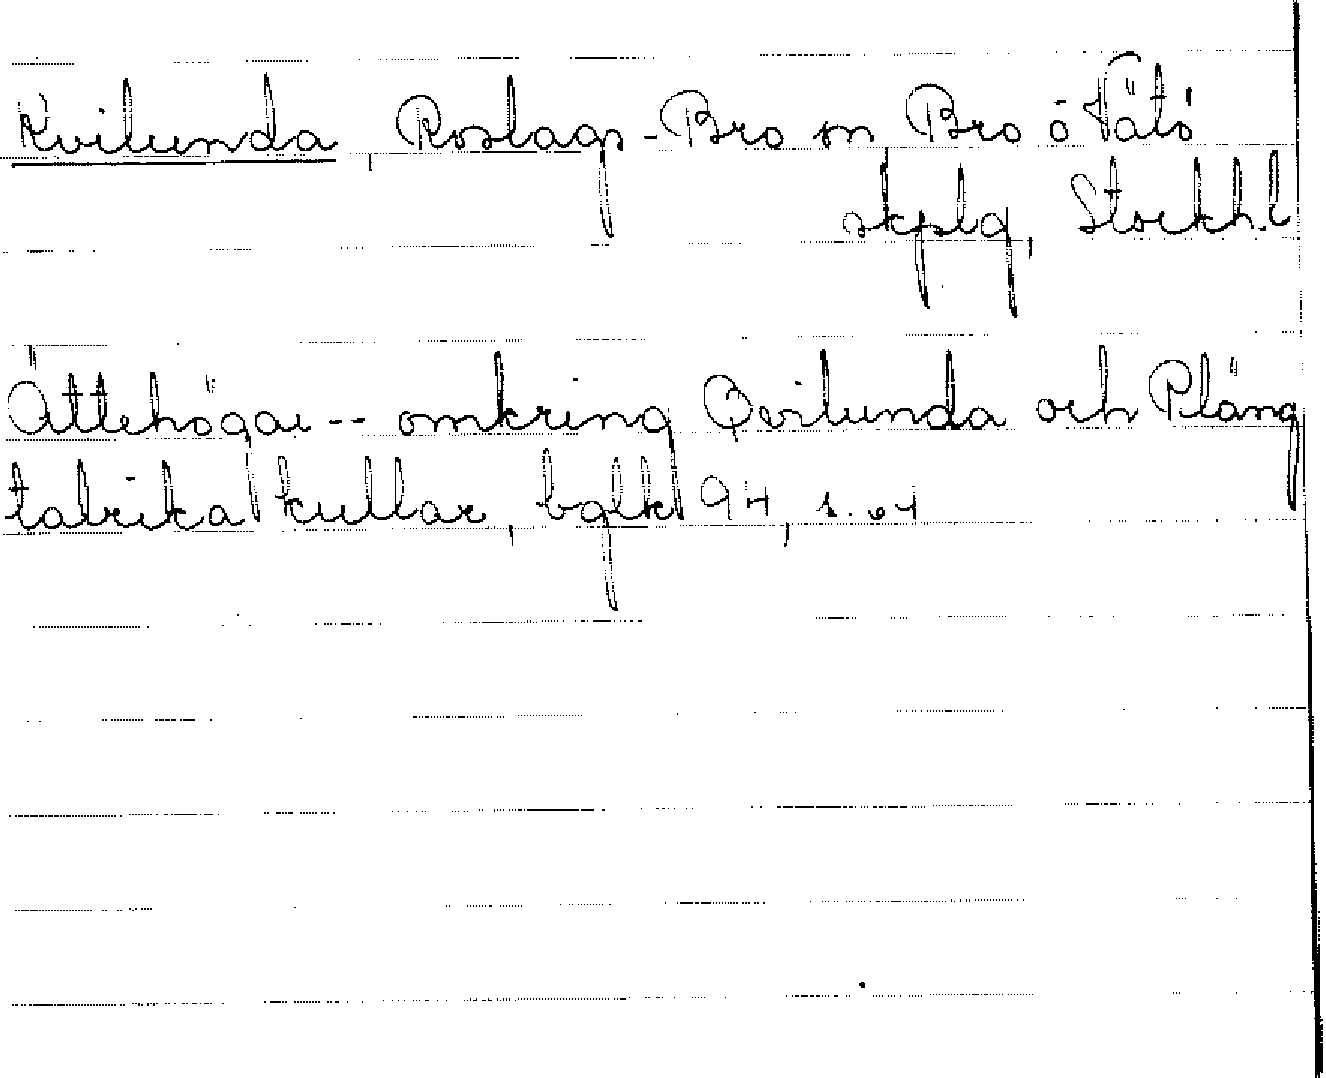 Kvilunda, Roslags-Bro sn Bro o Vätö
skplg, Stockh.l
Ättehögar -- omkring Qvilunda och Pläng
talrika kullar, bglk 94, s. 64